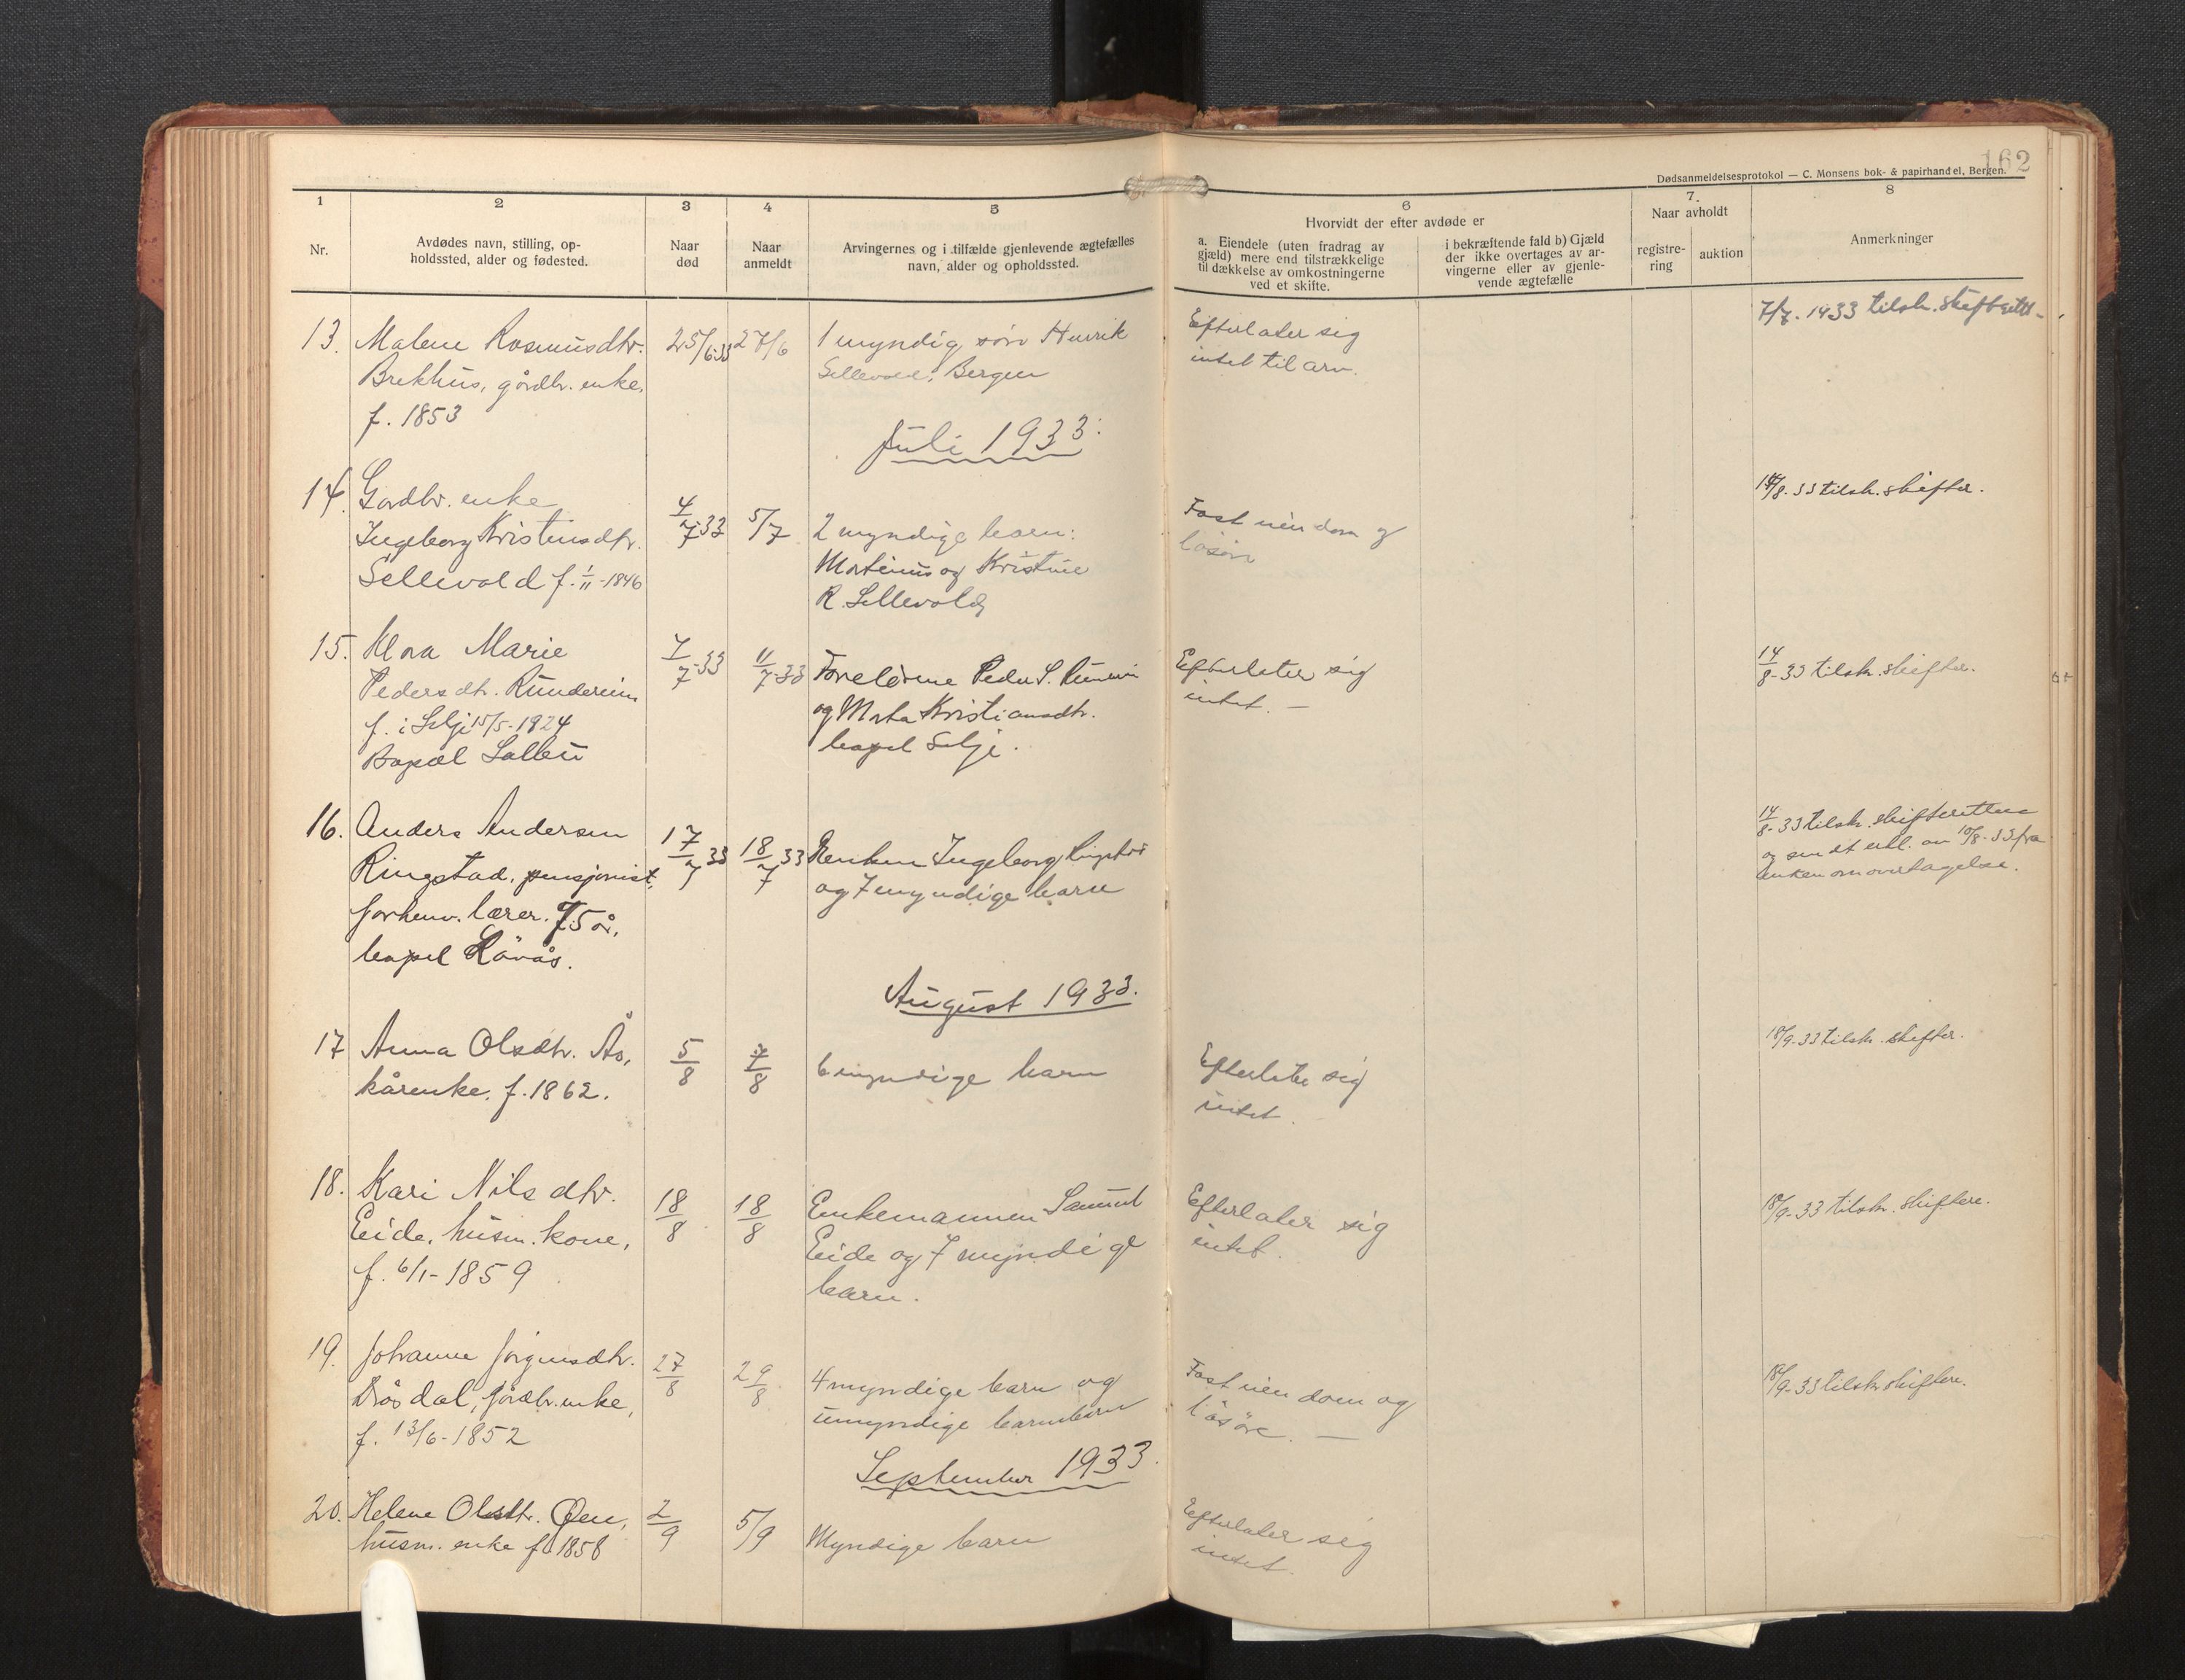 162
Dødsanmeldelsesprotokol — C. Monsens bok- & papirhandel, Bergen.
1
Nr.
2
Avdødes navn, stilling, op-
holdssted, alder og fødested.
3
Naar
død
4
Naar
anmeldt
5
Arvingernes og i tilfælde gjenlevende ægtefælles
navn, alder og opholdssted.
6
Hvorvidt der efter avdøde er
a. Eiendele (uten fradrag av
gjæld) mere end tilstrækkelige
til dækkelse av omkostningerne
ved et skifte.
i bekræftende fald b) Gjæld
der ikke overtages av ar-
vingerne eller av gjenle-
vende ægtefælle
7.
Naar avholdt
registre-
ring
auktion
8
Anmerkninger
13.
Malene Rasmusdtr.
Brekhus, gårdbr. enke,
f. 1853
25/6-33
27/6
1 myndig sön Henrik
Sellevold, Bergen
Efterlater sig
intet til arv.
7/7. 1933 tilskr. skifterett
Juli 1933:
14.
Gårdbr. enke
Ingeborg Kristensdtr.
Sellevold f. 1/11-1846
4/7-33
5/7
2 myndige barn:
Martinus og Kristine
R. Sellevold
Fast eiendom og
lösöre
14/8-33 tilskr. skifter.
15.
Klara Marie
Pedersdtr. Rundereim
f. i Selje 15/5-1924
Bopæl
7/7-33
11/7-33
Foreldrene Peder S.
og Marta Kristiansdtr.
bopæl Selje.
Efterlater sig
intet. —
14/8-33 tilskr. skifter.
16.
Anders Andersen
Ringstad, pensjonist,
forhenv. lærer. 75 år,
bopæl
17/7 33
18/7 33
Enken Ingeborg Ringstad
og 7 myndige barn
14/8-33 tilskr. skifteretten
og sendt erkl. av 10/8-33 fra
enken om overtagelse.
August 1933.
17
Anna Olsdtr. Ås,
kårenke. f. 1862.
5/8
7/8
6 myndige barn
Efterlater sig
intet.
18/9-33 tilskr. skifter.
18.
Kari Nilsdtr.
Eide, husm. kone,
f. 6/1-1859
18/8
18/8
Enkemannen Samuel
Eide og 7 myndige
barn.
Efterlater sig
intet.
18/9-33 tilskr. skiftere.
19.
Johanne Jörgensdtr.
gårdbr. enke,
f. 13/6-1852
27/8
29/8
4 myndige barn og
umyndige barnebarn
Fast eiendom og
lösöre. —
18/9-33 tilskr skiftere.
September 1933.
20.
Helene Olsdtr. Øen,
husm. enke f. 1858
2/9
5/9
Myndige barn
Efterlater sig
intet.